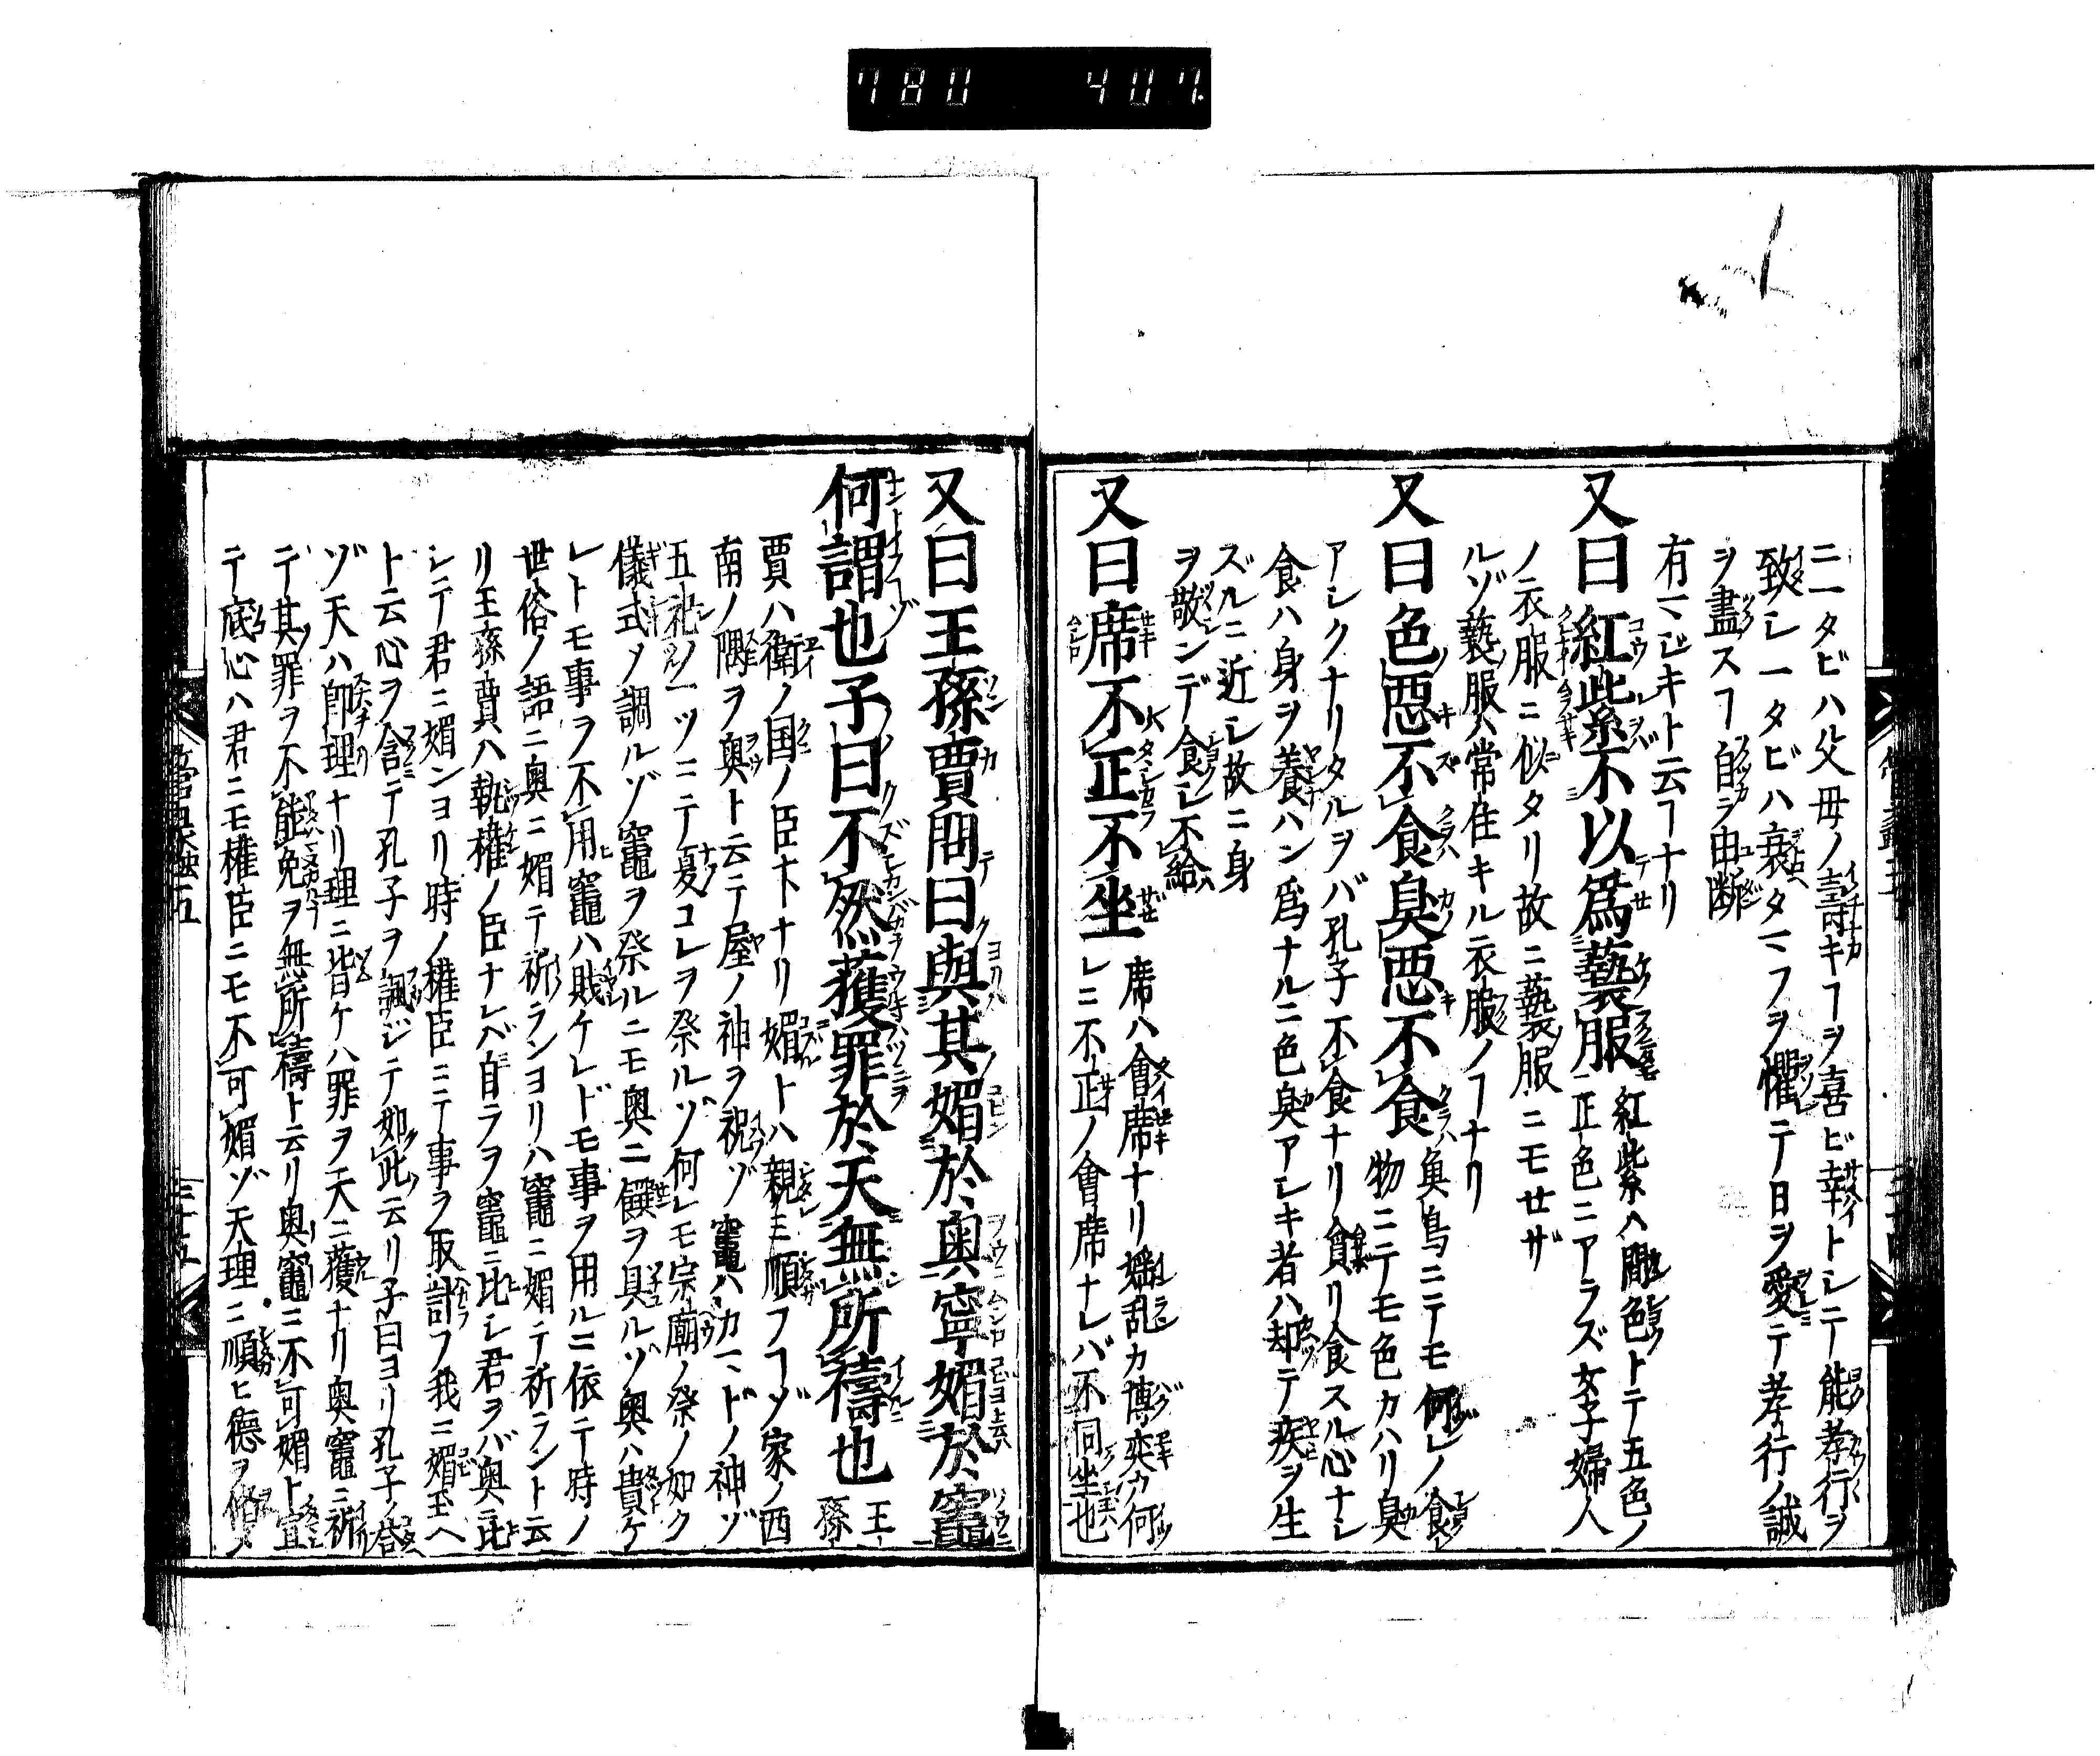 780 407
ニ一タビハ父母ノ壽キヿヲ喜ビ幸トシテ能孝行ヲ
致シ一タビハ衰タマフヲ懼テ日ヲ愛テ孝行ノ誠
ヲ盡スヿ自ラ由斷
有マジキト云ヿナリ
又曰紅紫不以爲褻服 紅紫ハ間色トテ五色ノ
正色ニアラズ女子婦人
ノ衣服ニ似タリ故ニ褻服ニモセザ
ルゾ褻服ハ常住キル衣服ノヿナリ
又曰色惡不食臭惡不食 魚鳥ニテモ何レノ食
物ニテモ色カハリ臭
アシクナリタルヲバ孔子不食ナリ貪リ食スル心ナシ
食ハ身ヲ養ハン爲ナルニ色臭アシキ者ハ却テ疾ヲ生
ズルニ近シ故ニ身
ヲ敬ンデ食シ不給
又曰席不正不坐 席ハ會席ナリ婬乱カ博奕カ何
レニ不正ノ會席ナレバ不同坐也
又曰王孫賈問曰與其媚於奥寧媚於竈
何謂也子曰不然獲罪於天無所禱也 王
孫
賈ハ衛ノ国ノ臣下ナリ媚トハ親ミ順フヿゾ家ノ西
南ノ隅ヲ奥ト云テ屋ノ神ヲ祝ゾ竈ハカマドノ神ゾ
五祀ノ一ツニテ夏コレヲ祭ルゾ何レモ宗廟ノ祭ノ如ク
儀式ヲ調ルゾ竈ヲ祭ルニモ奥ニ饌ヲ具ルゾ奥ハ貴ケ
レトモ事ヲ不用竈ハ賎ケレドモ事ヲ用ルニ依テ時ノ
世俗ノ語ニ奥ニ媚テ祈ランヨリハ竈ニ媚テ祈ラント云
リ王孫賈ハ執權ノ臣ナレバ自ラヲ竈ニ比シ君ヲバ奥ニ比
シテ君ニ媚ンヨリ時ノ權臣ニテ事ヲ取計フ我ニ媚玉ヘ
ト云心ヲ含テ孔子ヲ諷ジテ如此云リ子曰ヨリ孔子ノ答
ゾ天ハ即理ナリ理ニ背ケハ罪ヲ天ニ獲ナリ奥竈ニ祈
テ其罪ヲ不能免ヲ無所禱ト云リ奥竈ニ不可媚ト宣
テ底心ハ君ニモ權臣ニモ不可媚ゾ天理ニ順ヒ德ヲ脩